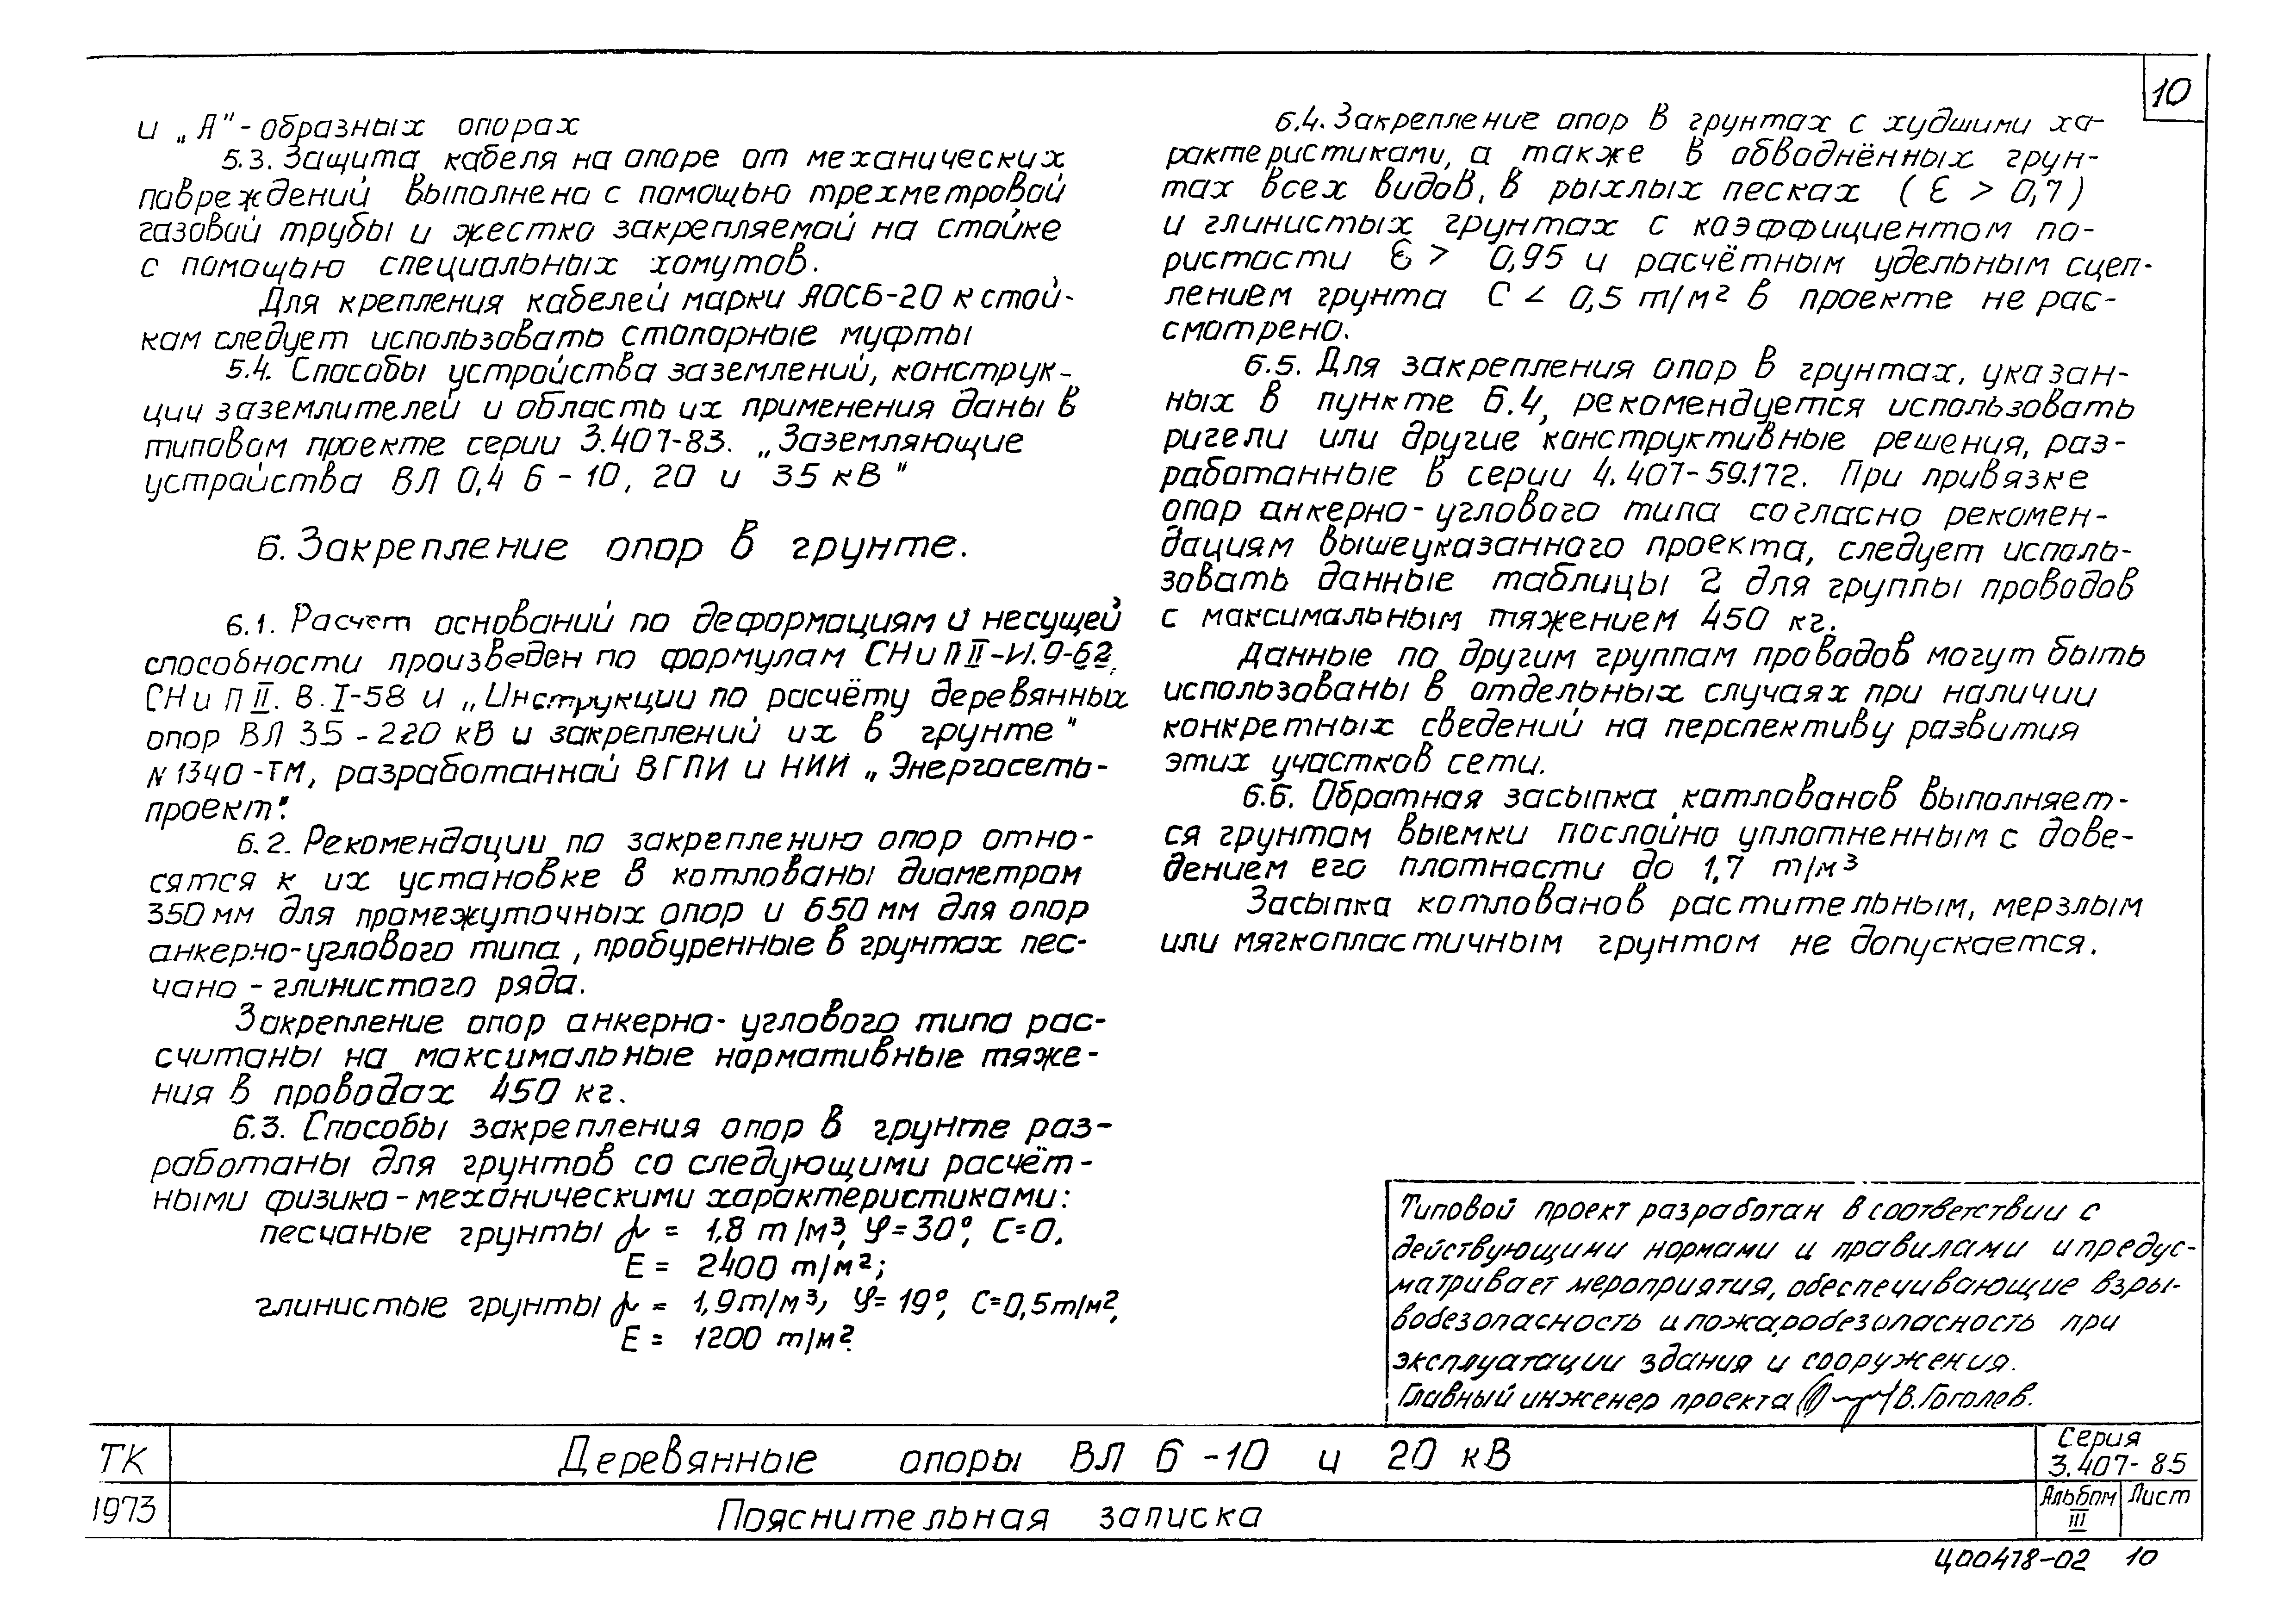 10
и „А"-образных опорах
5.3. Защита кабеля на опоре от механических
повреждений выполнена с помощью трехметровой
газовой трубы и жестко закрепляемой на стойке
с помощью специальных хомутов.
Для крепления кабелей марки АОСБ-20 к стой-
кам следует использовать стопорные муфты
5.4. Способы устройства заземлений, конструк-
ции заземлителей и область их применения даны в
типовом проекте серии 3.407-83. „Заземляющие
устройства ВЛ 0,4 6-10, 20 и 35 кВ"
6. Закрепление опор в грунте.
6.1. Расчет оснований по деформациям и несущей
способности произведен по формулам СНиП II-И.9-62,
СНиП II. В.I-58 и „Инструкции по расчёту деревянных
опор ВЛ 35-220 кВ и закреплений их в грунте"
N 1340-ТМ, разработанной ВГПИ и НИИ „Энергосеть-
проект".
6.2. Рекомендации по закреплению опор отно-
сятся к их установке в котлованы диаметром
350 мм для промежуточных опор и 650 мм для опор
анкерно-углового типа, пробуренные в грунтах пес-
чано-глинистого ряда.
Закрепление опор анкерно-углового типа рас-
считаны на максимальные нормативные тяже-
ния в проводах 450 кг.
6.3. Способы закрепления опор в грунте раз-
работаны для грунтов со следующими расчёт-
ными физико-механическими характеристиками:
песчаные грунты γ = 1,8 т/м³, φ=30°, С=0.
Е = 2400 т/м²;
глинистые грунты γ = 1,9т/м³, φ=19°, С=0,5т/м²,
Е = 1200 т/м².
6.4. Закрепление опор в грунтах с худшими ха-
рактеристиками, а также в обводнённых грун-
тах всех видов, в рыхлых песках (Ɛ > 0,7)
и глинистых грунтах с коэффициентом по-
ристости Ɛ > 0,95 и расчётным удельным сцеп-
лением грунта С < 0,5 т/м² в проекте не рас-
смотрено.
6.5. Для закрепления опор в грунтах, указан-
ных в пункте 6.4, рекомендуется использовать
ригели или другие конструктивные решения, раз-
работанные в серии 4.407-59.172. При привязке
опор анкерно-углового типа согласно рекомен-
дациям вышеуказанного проекта, следует исполь-
зовать данные таблицы 2 для группы проводов
с максимальным тяжением 450 кг.
Данные по другим группам проводов могут быть
использованы в отдельных случаях при наличии
конкретных сведений на перспективу развития
этих участков сети.
6.6. Обратная засыпка котлованов выполняет-
ся грунтом выемки послойно уплотненным с дове-
дением его плотности до 1,7 т/м³
Засыпка котлованов растительным, мерзлым
или мягкопластичным грунтом не допускается.
Типовой проект разработан в соответствии с
действующими нормами и правилами и предус-
матривает мероприятия, обеспечивающие взры-
вобезопасность и пожаробезопасность при
эксплуатации здания и сооружения.
Главный инженер проекта В. Гоголев.
ТК
1973
Деревянные опоры ВЛ 6-10 и 20 кВ
Пояснительная записка
Серия
3.407-85
Альбом Лист
III
Ц00478-02 10